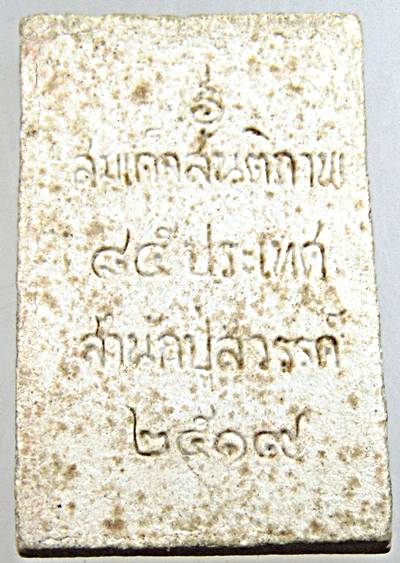 สมเด็จสันติภาพ
๘๕ ประเทศ
สำนักปู่สวรรค์
๒๕๑๙